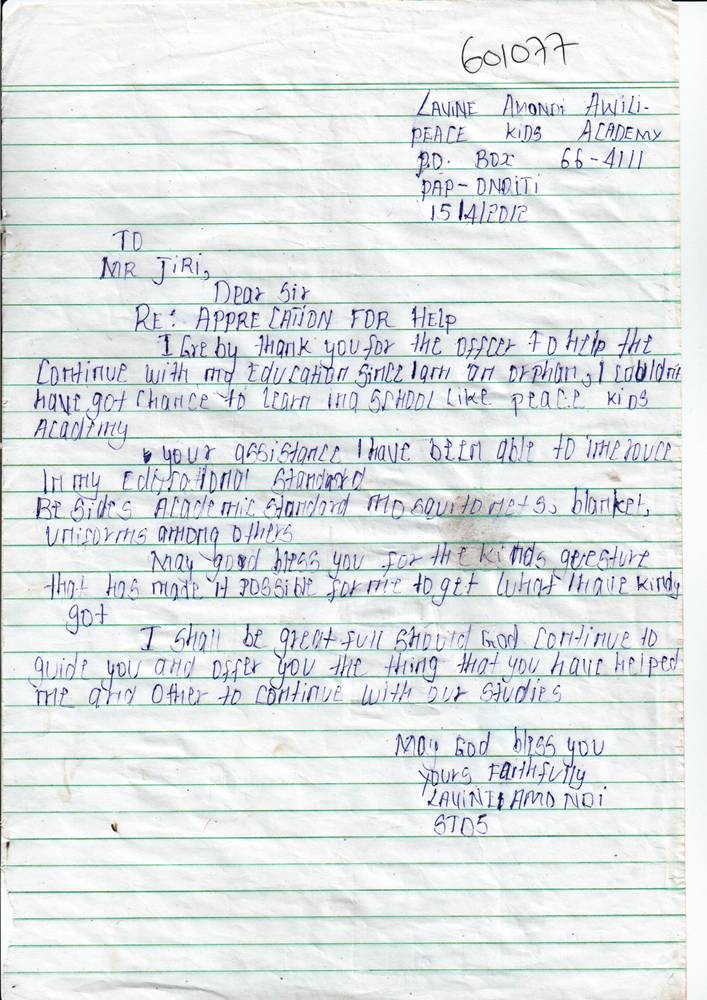 601077
LAVINE AMONDI AWILI-
PEACE KIDS ACADEMY
P.O. BOX 66-4111
PAP-ONDITI
15/4/2012
TO
MR JIRI,
Dear Sir
RE: APPRECATION FOR HELP
I here by thank you for the officer to help the
Continue with my Education since I am an orphan, I couldnt
have got chance to learn in a SCHOOL LIKE peace kids
Academy
your assistance I have been able to
In my Educational Standard
Besides Academic standard mosquito nets, blanket,
uniforms among others
May good bless you for the kinds gesture
that has made it possible for me to get what I have kindy
got
I shall be great full should God continue to
guide you and offer you the thing that you have helped
me and other to continue with our studies
May God bless you
yours Faithfully
LAVINE AMONDI
STD5